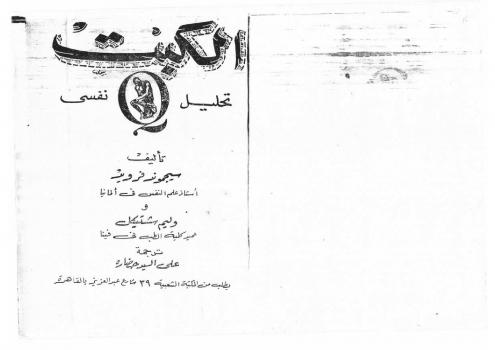 الكبت
تحليل نفسى
تأليف
سيجموند فرويد
أستاذ علم النفس فى ألمانيا
و
وليم شتيكل
عميد كلية الطب فى فينا
ترجمة
على السيد حضاره
يطلب من المكتبة الشعبية ٣٩ شارع عبد العزيز بالقاهرة